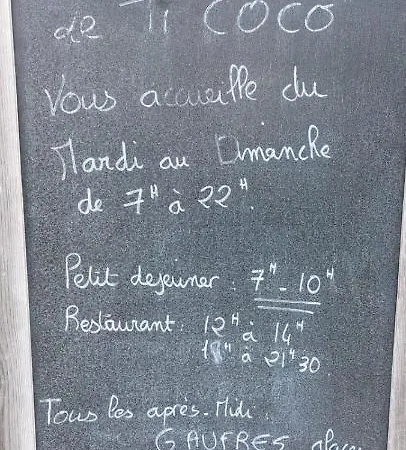 de Ti COCO
Vous accueille du
Mardi au Dimanche
de 7H à 22H.
Petit dejeuner : 7H - 10H
Restaurant : 12H à 14H
à 21H30.
Tous les après-Midi :
GAUFRES